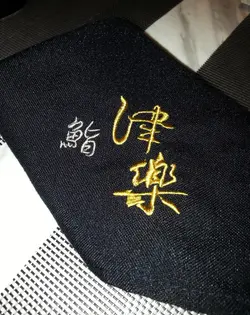 鮨
津
樂